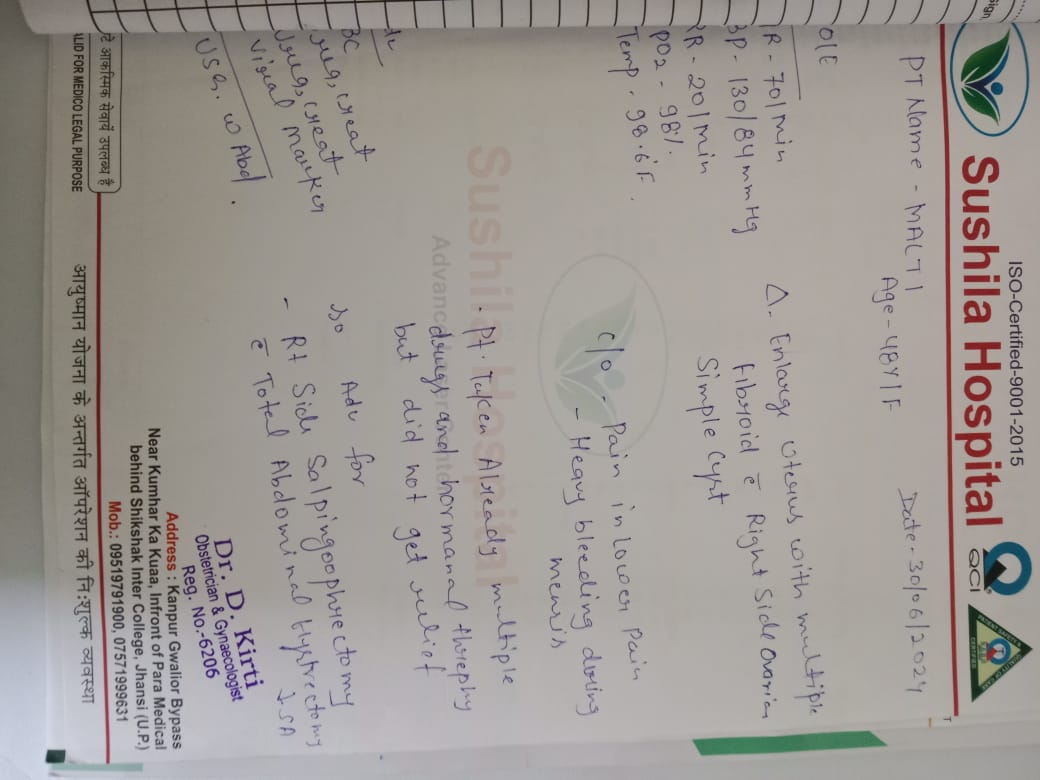 ISO-Certified-9001-2015
Sushila Hospital
QCI
PT Name - MALTI
Age - 48Y/F
Date - 30/06/2024
O/E
R - 70/min
BP - 130/84 mmHg
RR - 20/min
PO2 - 98%.
Temp. - 98.6°F.
Δ - Enlarge Uterus with multiple
fibroid c̄ Right Side Ovarian
Simple Cyst
c/o - Pain in Lower Pain
- Heavy bleeding during
mensis
Sushila Hospital
. Pt. Taken Already multiple
drugs and hormanal threphy
but did not get relief
BC
creat
Viral marker
USG. W Abd.
so Adv for
- Rt Side Salpingoophrectomy
c̄ Total Abdominal Hystrectomy
↓SA
Dr. D. Kirti
Obstetrician & Gynaecologist
Reg. No.-6206
Address : Kanpur Gwalior Bypass
Near Kumhar Ka Kuaa, Infront of Para Medical
behind Shikshak Inter College, Jhansi (U.P.)
Mob.: 09519791900, 07571999631
टे आकस्मिक सेवायें उपलब्ध है
LID FOR MEDICO LEGAL PURPOSE
आयुष्मान योजना के अन्तर्गत ऑपरेशन की नि:शुल्क व्यवस्था